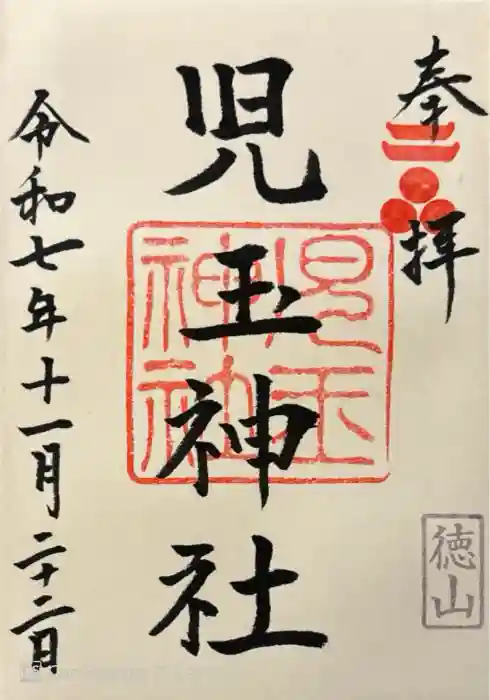 奉拝
児玉神社
児玉
神社
徳山
令和七年十一月二十二日